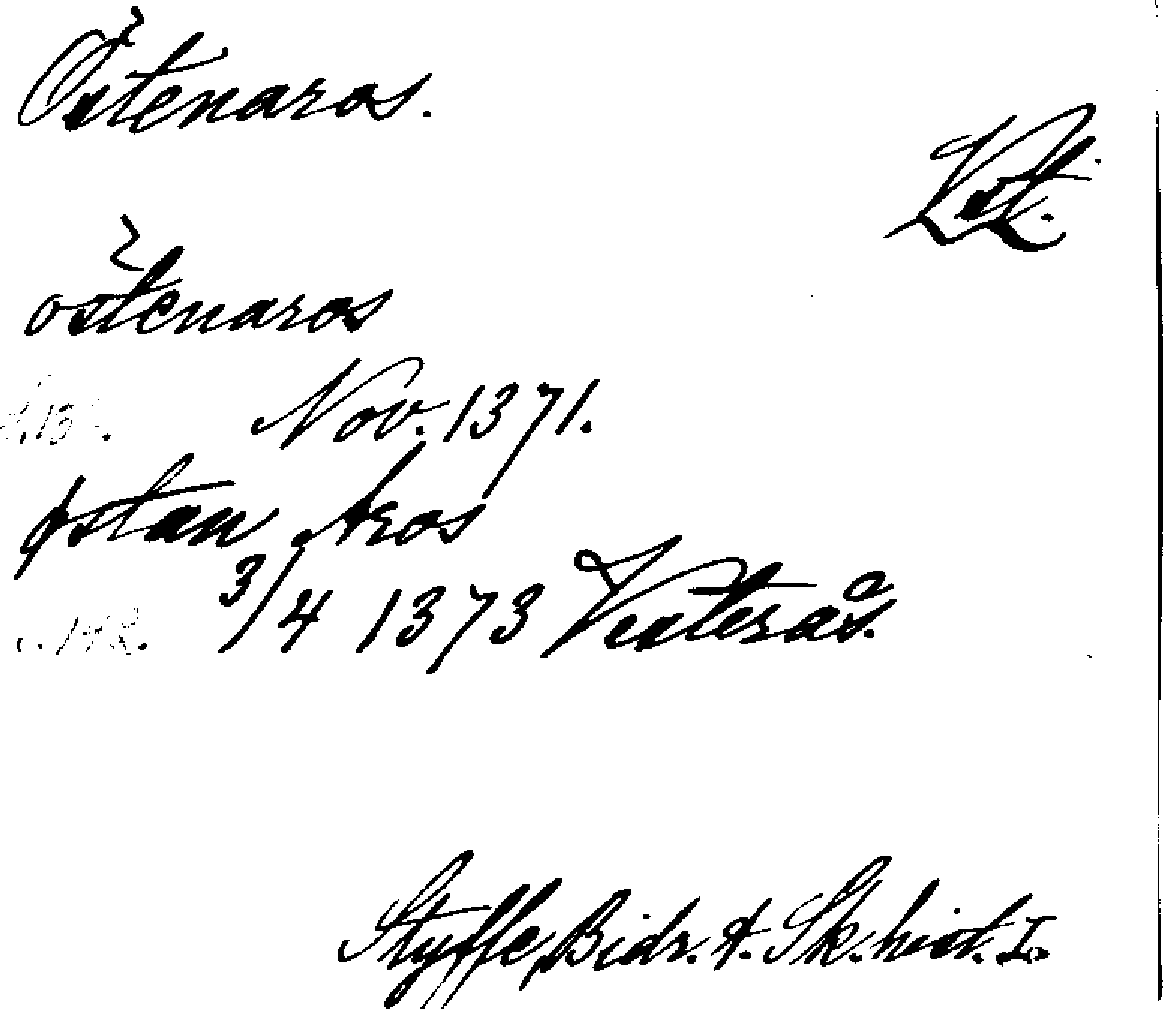 Östenaros.
Vst.
östenaros
Nov. 1371.
østan Aros
3/4 1373 Vesterås.
Styffe, Bidr. t. Sk. hist. I.